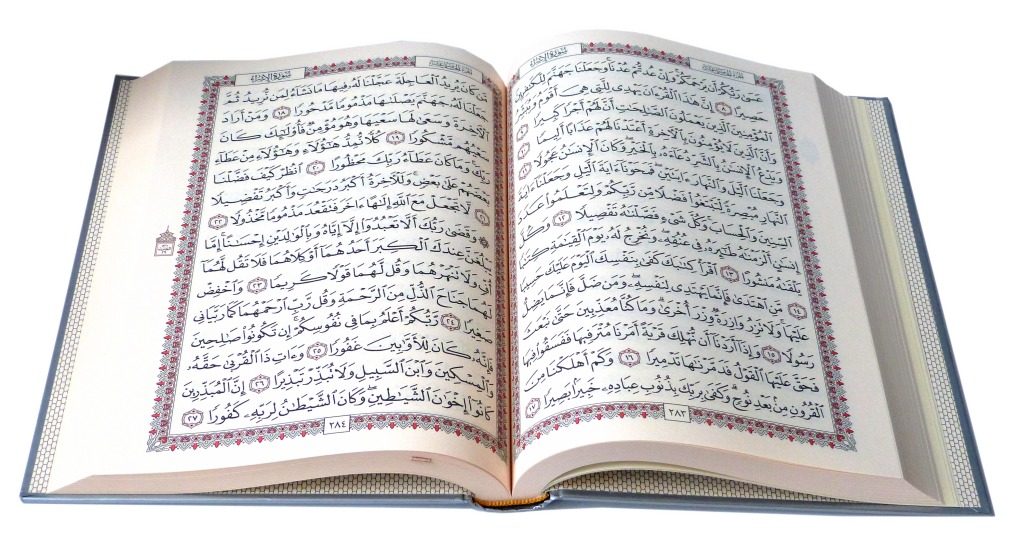 سُورَةُ الإِسْرَاءِ
الجزء الخامس عشر
عَسَىٰ رَبُّكُمْ أَن يَرْحَمَكُمْ وَإِنْ عُدتُّمْ عُدْنَا وَجَعَلْنَا جَهَنَّمَ لِلْكَٰفِرِينَ
حَصِيرًا ٨ إِنَّ هَٰذَا ٱلْقُرْءَانَ يَهْدِى لِلَّتِى هِىَ أَقْوَمُ وَيُبَشِّرُ
ٱلْمُؤْمِنِينَ ٱلَّذِينَ يَعْمَلُونَ ٱلصَّٰلِحَٰتِ أَنَّ لَهُمْ أَجْرًا كَبِيرًا ٩
وَأَنَّ ٱلَّذِينَ لَا يُؤْمِنُونَ بِٱلْءَاخِرَةِ أَعْتَدْنَا لَهُمْ عَذَابًا أَلِيمًا ١٠
وَيَدْعُ ٱلْإِنسَٰنُ بِٱلشَّرِّ دُعَآءَهُۥ بِٱلْخَيْرِ وَكَانَ ٱلْإِنسَٰنُ عَجُولًا ١١
وَجَعَلْنَا ٱلَّيْلَ وَٱلنَّهَارَ ءَايَتَيْنِ فَمَحَوْنَآ ءَايَةَ ٱلَّيْلِ وَجَعَلْنَآ ءَايَةَ
ٱلنَّهَارِ مُبْصِرَةً لِّتَبْتَغُوا۟ فَضْلًا مِّن رَّبِّكُمْ وَلِتَعْلَمُوا۟ عَدَدَ
ٱلسِّنِينَ وَٱلْحِسَابَ وَكُلَّ شَىْءٍ فَصَّلْنَٰهُ تَفْصِيلًا ١٢ وَكُلَّ
إِنسَٰنٍ أَلْزَمْنَٰهُ طَٰٓئِرَهُۥ فِى عُنُقِهِۦ وَنُخْرِجُ لَهُۥ يَوْمَ ٱلْقِيَٰمَةِ كِتَٰبًا
يَلْقَىٰهُ مَنشُورًا ١٣ ٱقْرَأْ كِتَٰبَكَ كَفَىٰ بِنَفْسِكَ ٱلْيَوْمَ عَلَيْكَ حَسِيبًا
١٤ مَّنِ ٱهْتَدَىٰ فَإِنَّمَا يَهْتَدِى لِنَفْسِهِۦ وَمَن ضَلَّ فَإِنَّمَا يَضِلُّ
عَلَيْهَا وَلَا تَزِرُ وَازِرَةٌ وِزْرَ أُخْرَىٰ وَمَا كُنَّا مُعَذِّبِينَ حَتَّىٰ نَبْعَثَ
رَسُولًا ١٥ وَإِذَآ أَرَدْنَآ أَن نُّهْلِكَ قَرْيَةً أَمَرْنَا مُتْرَفِيهَا فَفَسَقُوا۟ فِيهَا
فَحَقَّ عَلَيْهَا ٱلْقَوْلُ فَدَمَّرْنَٰهَا تَدْمِيرًا ١٦ وَكَمْ أَهْلَكْنَا مِنَ
ٱلْقُرُونِ مِنۢ بَعْدِ نُوحٍ وَكَفَىٰ بِرَبِّكَ بِذُنُوبِ عِبَادِهِۦ خَبِيرًۢا بَصِيرًا ١٧
٢٨٣
الجزء الخامس عشر
سُورَةُ الإِسْرَاءِ
مَّن كَانَ يُرِيدُ ٱلْعَاجِلَةَ عَجَّلْنَا لَهُۥ فِيهَا مَا نَشَآءُ لِمَن نُّرِيدُ ثُمَّ
جَعَلْنَا لَهُۥ جَهَنَّمَ يَصْلَىٰهَا مَذْمُومًا مَّدْحُورًا ١٨ وَمَنْ أَرَادَ
ٱلْءَاخِرَةَ وَسَعَىٰ لَهَا سَعْيَهَا وَهُوَ مُؤْمِنٌ فَأُو۟لَٰٓئِكَ كَانَ
سَعْيُهُم مَّشْكُورًا ١٩ كُلًّا نُّمِدُّ هَٰٓؤُلَآءِ وَهَٰٓؤُلَآءِ مِنْ عَطَآءِ
رَبِّكَ وَمَا كَانَ عَطَآءُ رَبِّكَ مَحْظُورًا ٢٠ ٱنظُرْ كَيْفَ فَضَّلْنَا
بَعْضَهُمْ عَلَىٰ بَعْضٍ وَلَلْءَاخِرَةُ أَكْبَرُ دَرَجَٰتٍ وَأَكْبَرُ تَفْضِيلًا
٢١ لَّا تَجْعَلْ مَعَ ٱللَّهِ إِلَٰهًا ءَاخَرَ فَتَقْعُدَ مَذْمُومًا مَّخْذُولًا ٢٢
۞ وَقَضَىٰ رَبُّكَ أَلَّا تَعْبُدُوٓا۟ إِلَّآ إِيَّاهُ وَبِٱلْوَٰلِدَيْنِ إِحْسَٰنًا إِمَّا
يَبْلُغَنَّ عِندَكَ ٱلْكِبَرَ أَحَدُهُمَآ أَوْ كِلَاهُمَا فَلَا تَقُل لَّهُمَآ
أُفٍّ وَلَا تَنْهَرْهُمَا وَقُل لَّهُمَا قَوْلًا كَرِيمًا ٢٣ وَٱخْفِضْ
لَهُمَا جَنَاحَ ٱلذُّلِّ مِنَ ٱلرَّحْمَةِ وَقُل رَّبِّ ٱرْحَمْهُمَا كَمَا رَبَّيَانِى
صَغِيرًا ٢٤ رَّبُّكُمْ أَعْلَمُ بِمَا فِى نُفُوسِكُمْ إِن تَكُونُوا۟ صَٰلِحِينَ
فَإِنَّهُۥ كَانَ لِلْأَوَّٰبِينَ غَفُورًا ٢٥ وَءَاتِ ذَا ٱلْقُرْبَىٰ حَقَّهُۥ
وَٱلْمِسْكِينَ وَٱبْنَ ٱلسَّبِيلِ وَلَا تُبَذِّرْ تَبْذِيرًا ٢٦ إِنَّ ٱلْمُبَذِّرِينَ
كَانُوٓا۟ إِخْوَٰنَ ٱلشَّيَٰطِينِ وَكَانَ ٱلشَّيْطَٰنُ لِرَبِّهِۦ كَفُورًا ٢٧
٢٨٤